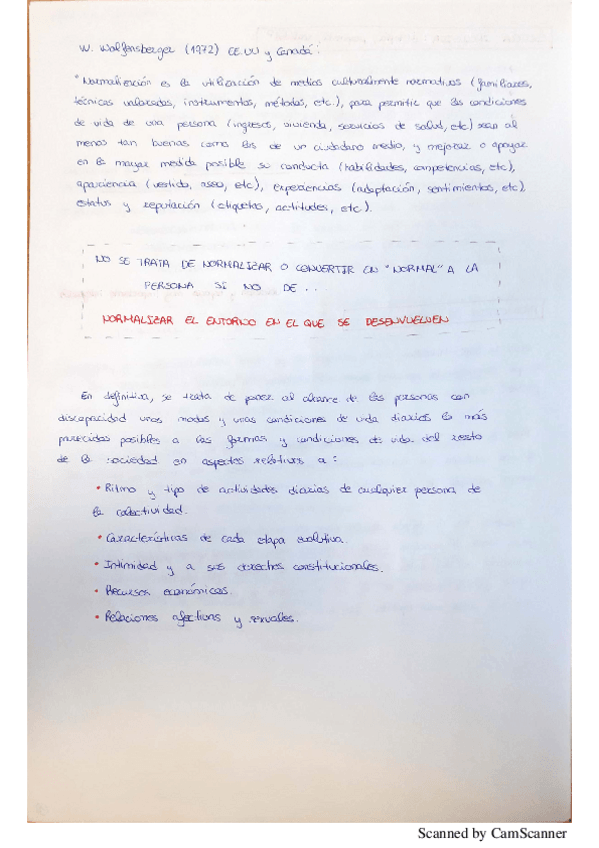 W. Wolfensberger (1972) EE.UU y Canadá:
"Normalización es la utilización de medios culturalmente normativos (familiares,
técnicas valoradas, instrumentos, métodos, etc.), para permitir que las condiciones
de vida de una persona (ingresos, vivienda, servicios de salud, etc) sean al
menos tan buenas como las de un ciudadano medio, y mejorar o apoyar
en la mayor medida posible su conducta (habilidades, competencias, etc),
apariencia (vestido, aseo, etc), experiencias (adaptación, sentimientos, etc),
estatus y reputación (etiquetas, actitudes, etc).
NO SE TRATA DE NORMALIZAR O CONVERTIR EN "NORMAL" A LA
PERSONA SI NO DE ..
NORMALIZAR EL ENTORNO EN EL QUE SE DESENVUELVEN
En definitiva, se trata de poner al alcance de las personas con
discapacidad unos modos y unas condiciones de vida diarios lo más
parecidas posibles a las formas y condiciones de vida del resto
de la sociedad en aspectos relativos a:
• Ritmo y tipo de actividades diarias de cualquier persona de
la colectividad.
• Características de cada etapa evolutiva.
• Intimidad y a sus derechos constitucionales.
• Recursos económicos.
• Relaciones afectivas y sexuales.
Scanned by CamScanner